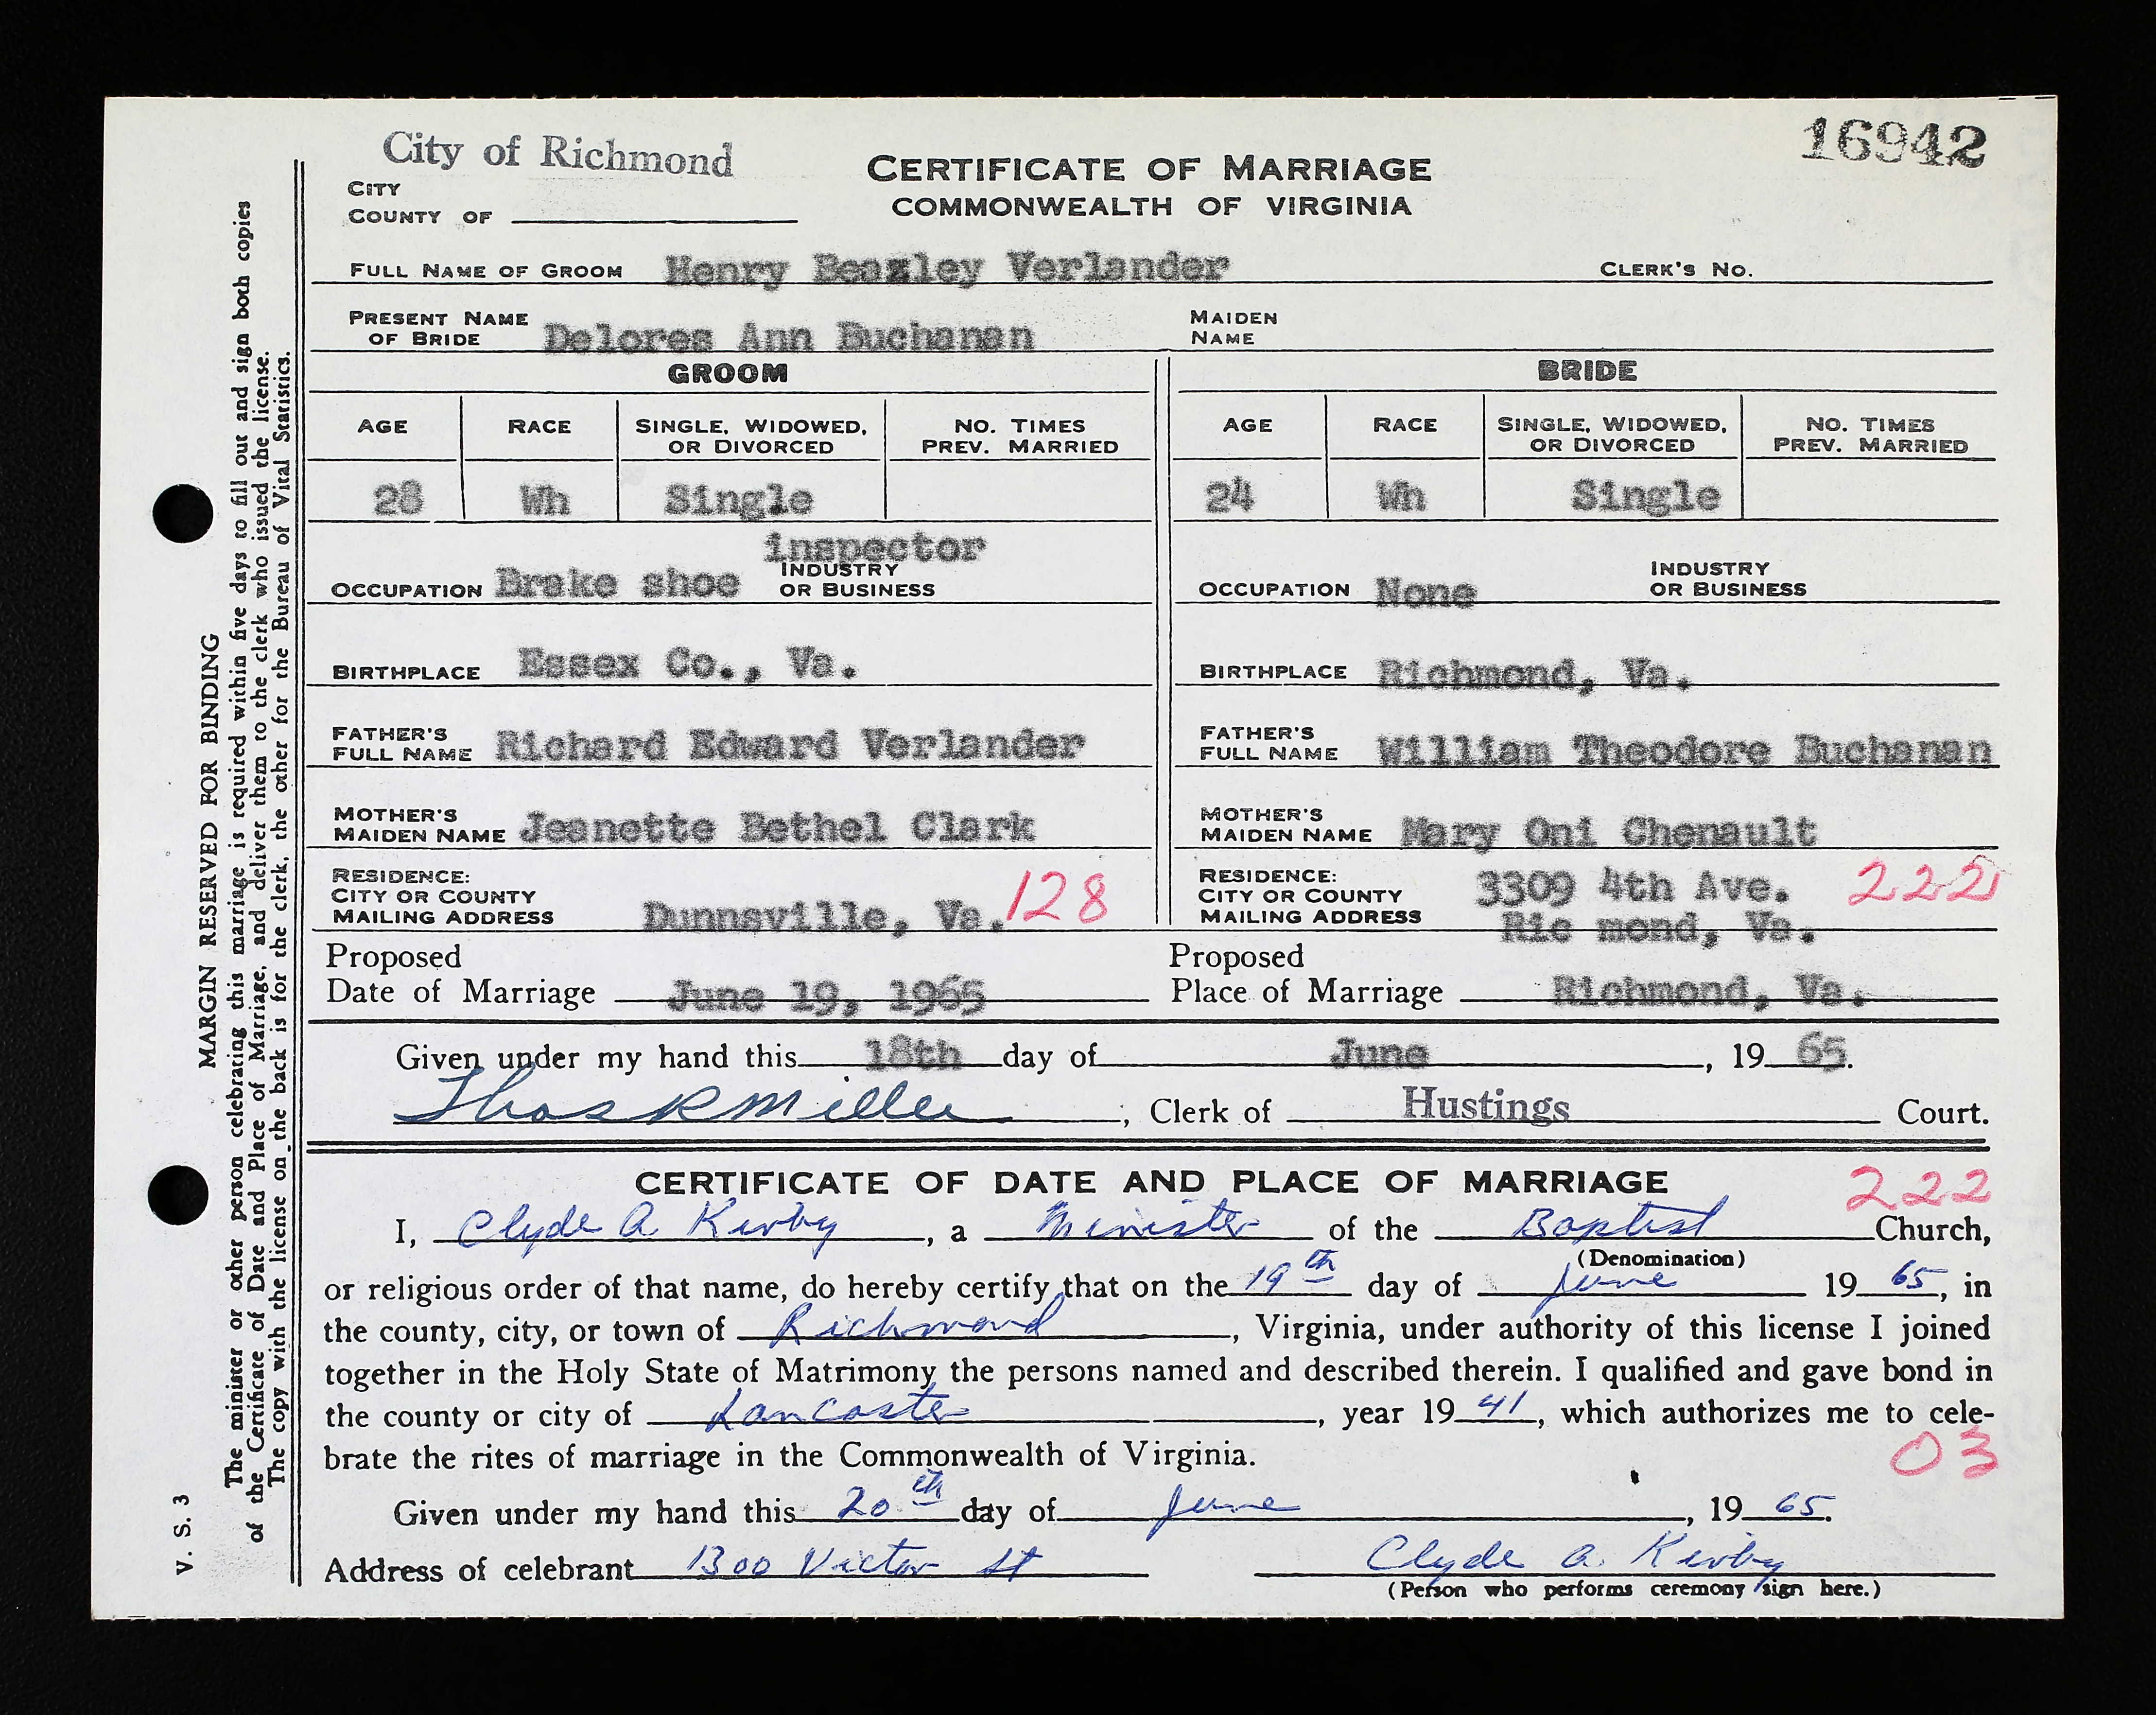 City of Richmond
16942
CERTIFICATE OF MARRIAGE
CITY
COUNTY OF
COMMONWEALTH OF VIRGINIA
FULL NAME OF GROOM Henry Beazley Verlander CLERK'S NO.
PRESENT NAME OF BRIDE Delores Ann Buchanan MAIDEN NAME
GROOM BRIDE
AGE RACE SINGLE, WIDOWED, OR DIVORCED NO. TIMES PREV. MARRIED AGE RACE SINGLE, WIDOWED, OR DIVORCED NO. TIMES PREV. MARRIED
28 Wh Single 24 Wh Single
inspector
OCCUPATION Brake shoe INDUSTRY OR BUSINESS OCCUPATION None INDUSTRY OR BUSINESS
BIRTHPLACE Essex Co., Va. BIRTHPLACE Richmond, Va.
FATHER'S FULL NAME Richard Edward Verlander FATHER'S FULL NAME William Theodore Buchanan
MOTHER'S MAIDEN NAME Jeanette Bethel Clark MOTHER'S MAIDEN NAME Mary Oni Chenault
RESIDENCE: CITY OR COUNTY MAILING ADDRESS Dunnsville, Va. 128 RESIDENCE: CITY OR COUNTY MAILING ADDRESS 3309 4th Ave. 222
Ric mond, Va.
Proposed Date of Marriage June 19, 1965 Proposed Place of Marriage Richmond, Va.
Given under my hand this 18th day of June, 19 65.
Thos R Miller, Clerk of Hustings Court.
CERTIFICATE OF DATE AND PLACE OF MARRIAGE 222
I, Clyde A. Kirby, a Minister of the Baptist Church,
(Denomination)
or religious order of that name, do hereby certify that on the 19th day of June 19 65, in
the county, city, or town of Richmond, Virginia, under authority of this license I joined
together in the Holy State of Matrimony the persons named and described therein. I qualified and gave bond in
the county or city of Lancaster, year 19 41, which authorizes me to cele-
brate the rites of marriage in the Commonwealth of Virginia. 03
Given under my hand this 20th day of June, 19 65.
Address of celebrant 1300 Victor St Clyde A. Kirby
(Person who performs ceremony sign here.)
MARGIN RESERVED FOR BINDING
The minister or other person celebrating this marriage is required within five days to fill out and sign both copies
of the Certificate of Date and Place of Marriage, and deliver them to the clerk who issued the license.
The copy with the license on the back is for the clerk, the other for the Bureau of Vital Statistics.
V. S. 3